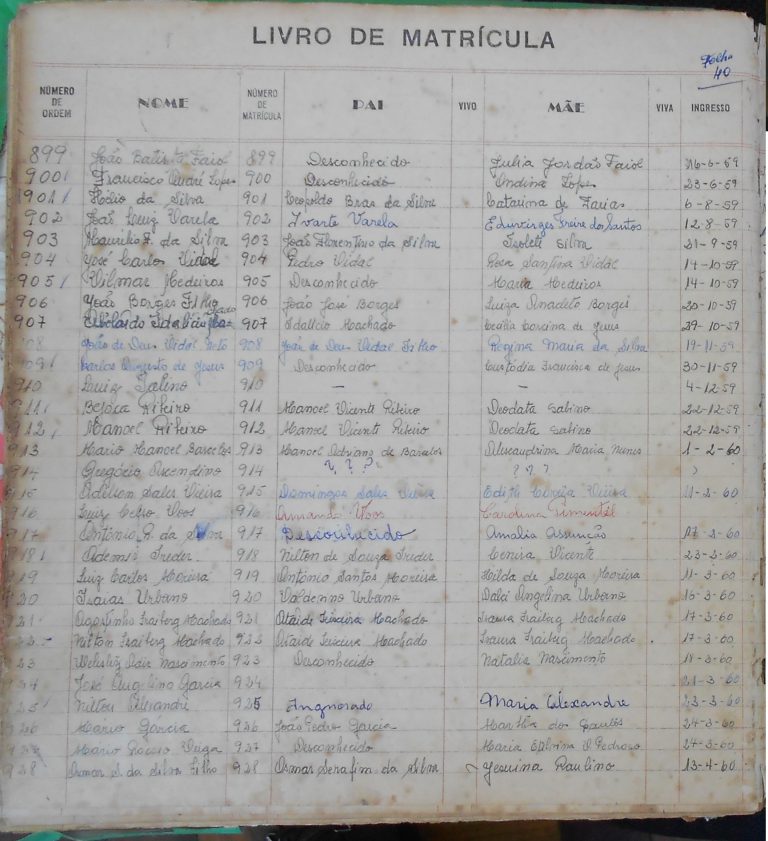 LIVRO DE MATRÍCULA
Folha 40
NÚMERO DE ORDEM NOME NÚMERO DE MATRÍCULA PAI VIVO MÃE VIVA INGRESSO
899 João Batista Faiol 899 Desconhecido Julia Jordão Faiol 16-6-59
900 Francisco André Lopes 900 Desconhecido Ondina Lopes 23-6-59
901 Hélio da Silva 901 Leopoldo Bras da Silva Catarina de Farias 6-8-59
902 João Luiz Varela 902 Ivarte Varela Edwirges Freire dos Santos 12-8-59
903 Maurilio F. da Silva 903 João Florentino da Silva Isoleti Silva 21-9-59
904 José Carlos Vidal 904 Pedro Vidal Rosa Santina Vidal 14-10-59
905 Vilmar Medeiros 905 Desconhecido Maria Medeiros 14-10-59
906 João Borges Filho 906 João José Borges Luiza Anacleto Borges 20-10-59
907 907 Idalicio Machado de Jesus 29-10-59
908 João de Deus Vidal Neto 908 João de Deus Vidal Filho Regina Maria da Silva 19-11-59
909 Carlos Augusto de Jesus 909 Desconhecido Custódia Francisca de Jesus 30-11-59
910 Luiz Galino 910 — — 4-12-59
911 Ribeiro 911 Manoel Vicente Ribeiro Deodata Sabino 22-12-59
912 Manoel Ribeiro 912 Manoel Vicente Ribeiro Deodata Sabino 22-12-59
913 Mario Manoel Barcelos 913 Manoel Adriano de Barcelos Alexandrina Maria Nunes 1-2-60
914 Gregório Ascendino 914 ? ? ? ? ? ?
915 Adelson Sales Vieira 915 Domingos Sales Vieira Edith Corrêa Vieira 11-2-60
916 Luiz Celso Voos 916 Armando Voos Carolina Pimentel
917 Antônio R. da Silva 917 Desconhecido Amalia Assunção 17-2-60
918 Ademir Treder 918 Nilton de Souza Treder Vicente 23-2-60
919 Luiz Carlos Moreira 919 Antônio Santos Moreira Hilda de Souza Moreira 11-3-60
920 Isaias Urbano 920 Valdenno Urbano Dalci Angelina Urbano 16-3-60
921 Agostinho Fraiberg Machado 921 Ataíde Teixeira Machado Isaura Fraiberg Machado 17-3-60
922 Nilton Fraiberg Machado 922 Ataide Teixeira Machado Isaura Fraiberg Machado 17-3-60
923 Nascimento 923 Desconhecido Natalia Nascimento 18-3-60
924 José Angelino Garcia 924 21-3-60
925 Nilton Alexandre 925 Ingnorado Maria Alexandre 23-3-60
926 Mario Garcia 926 João Pedro Garcia Martha dos Santos 24-3-60
927 Mario Veiga 927 Desconhecido Maria Pedroso 24-3-60
928 Osmar S. da Silva Filho 928 Osmar Serafim da Silva Jesuina Paulino 13-4-60